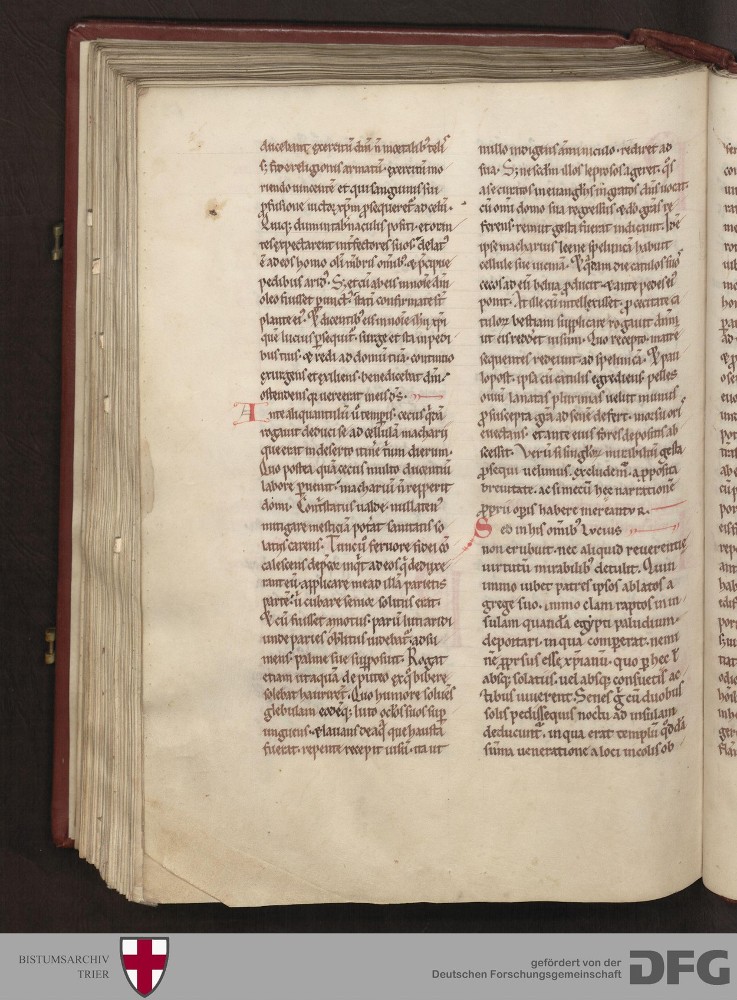 ducebant exercitū dn̄i n̄ mortalib; telis
s; fide religionis armatū · exercitū mo
riendo uincentē et qui sanguinis sui
ꝓfusione uictor xp̄m ꝓsequeret᷑ ad celū ·
positi · et om̄
tes expectarent int̄fectores suos · delat᷑
ē ad eos homo oīb; mēbris
pedibus arid᷑ · S; et cū ab eis in noīe dn̄i
oleo fuisset ꝑunct᷑ · statī confirmate st̄
plante ei᷑ · Et dicentib; eis in noīe ih̄u xp̄i
quē lucius ꝑsequit᷑ · surge et sta in pedi
bus tuis · et redi ad domū tuā · continuo
exurgens et exiliens · benedicebat dn̄m ·
ostendens q uere erat in eis d̄s ·
Ante aliquantulū u̅ tempis · cecus qdā
rogauit deduci se ad cellulā macharii
que erat in deserto itine triū dierum ·
Quo postea quā cecus multo ducentiū
labore ꝑuenit · machariū n̄ repperit
domi · Contristatus ualde · nullaten᷑
mitigare mesticiā poterat sanitatis so
latiis carens · Tunc u̅ feruore fidei cō
calescens dep̄cor inqt ad eos q̄ deduxe
rant eū · applicare me ad illā parietis
partē · ubi cubare senior solitus erat ·
Et cū fuisset amotus · parū luti aridi
unde paries oblitus uidebat᷑ · ad sū
mens · palme sue supposuit · Rogat
etiam ut aquā de puteo ex q bibere
solebat haurirēt · Quo humore soluēs
glebulam eodēq; luto oclos suos sup
unguens · et lauans de aq que hausta
fuerat · repente recepit uisū · ita ut
nullo indigens amminiculo · rediret ad
sua · S; ne scdm illos leprosos ageret · qs
a se curatos in euangliis ingratos dn̄s uocat
cū omi domo sua regressus · et do gr̄as re
ferens · rem ut gesta fuerat indicauit · Idē
ipse macharius leene speluncā habuit
cellule sue uicinā · Et qdam die catulos suos
cecos ad eū belua ꝓducit · et ante pedes ei᷑
ponit · At ille cū intellexisset · ꝓ cecitate ca
tulor bestiam supplicare rogauit dn̄m
ut eis reddet uisum · Quo recepto · matrē
sequentes redeunt ad speluncā · Et pau
lo post · ipsa cū catulis egrediens · pelles
ouiū lanatas plurimas uelut munus
ꝓ suscepta gr̄a ad senē defert · morsu ori
euectans · et ante eius fores depositis ab
scessit · Verū si singlor mirabiliū gesta
ꝓsequi uelimus · excludem᷑ a ꝓposita
breuitate · ac si mecū hec narrationē
ꝓprii opis habere mereantur ·
Sed in his om̄ib; Lucius
non erubuit · nec aliquid reuerentie
uirtutū mirabilib; detulit · Quin
immo iubet patres ipsos ablatos a
grege suo · immo clam raptos in in
sulam quandā egypti paludium ·
deportari · in qua compererat nemi
nē prorsus esse xp̄ianū · quo ꝑ hec ł
absq; solatiis · uel absq; consuetis ac
tibus uiuerent · Senes g cū duobus
solis pedissequis noctu ad insulam
deducunt᷑ · in qua erat templū qddā
sūma ueneratione a loci incolis ob
BISTUMSARCHIV
TRIER
gefördert von der
Deutschen Forschungsgemeinschaft
DFG